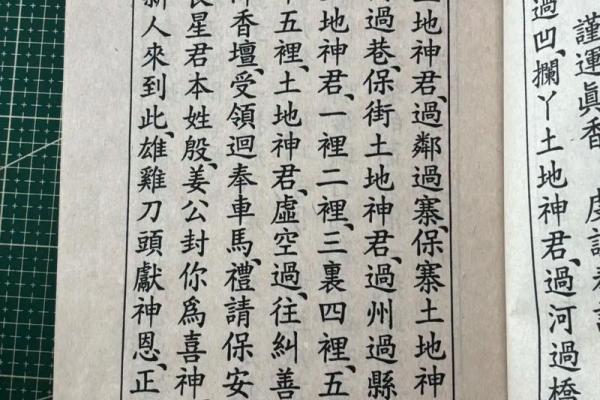 謹運眞香 虔請
過凹、攔丫土地神君、過河過橋
土地神君、過鄰過寨、保寨土地神
過巷、保街土地神君、過州過縣
地神君、一裡二裡、三裏四裡、五
五裡、土地神君、虛空過、往糾善
香壇、受領迴奉車馬、禮請保安
星君本姓殷、姜公封你爲喜神、
新人來到此、雄雞刀頭獻神恩、正